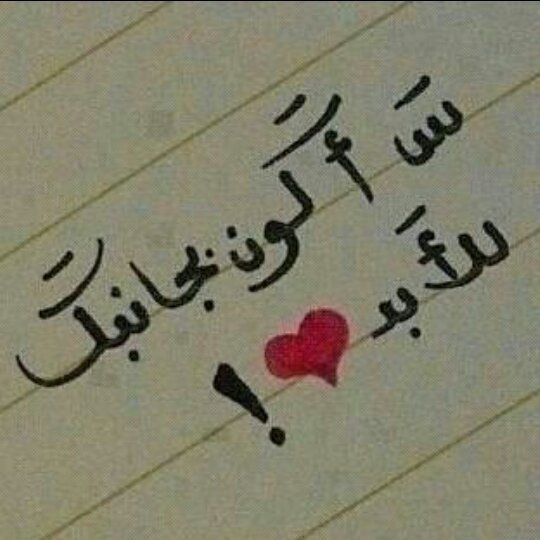 سَ أكون بجانبك
للأبد ❤ !